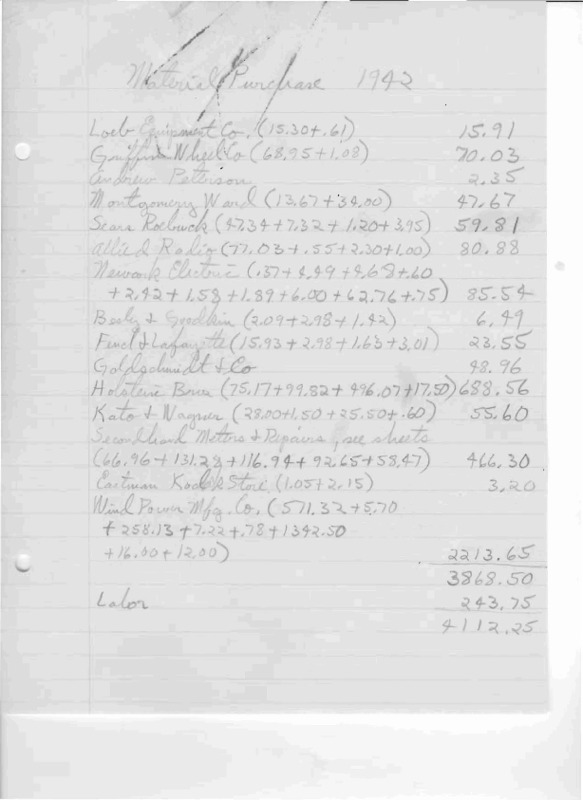 Material Purchase 1942
Loeb Equipment Co. (15.30+.61) 15.91
Griffin Wheel Co (68.95+1.08) 70.03
Andrew Petterson 2.35
Montgomery Ward (13.67+34.00) 47.67
Sears Roebuck (47.34+7.32+1.20+3.95) 59.81
Allied Radio (77.03+.55+2.30+1.00) 80.88
Newark Electric (.37+4.49+4.68+.60
+2.42+1.58+1.89+6.00+62.76+.75) 85.54
& (2.09+2.98+1.42) 6.49
& Lafayette (15.93+2.98+1.63+3.01) 23.55
Goldschmidt & Co 48.96
Holstein (75.17+99.82+496.07+17.50) 688.56
Kato & Wagner (28.00+1.50+25.50+.60) 55.60
Secondhand Meters & Repairs, see sheets
(66.96+131.28+116.94+92.65+58.47) 466.30
Eastman Kodak Store (1.05+2.15) 3.20
Wind Power Mfg. Co. (571.32+5.70
+258.13+7.22+.78+1342.50
+16.00+12.00) 2213.65
3868.50
Labor 243.75
4112.25